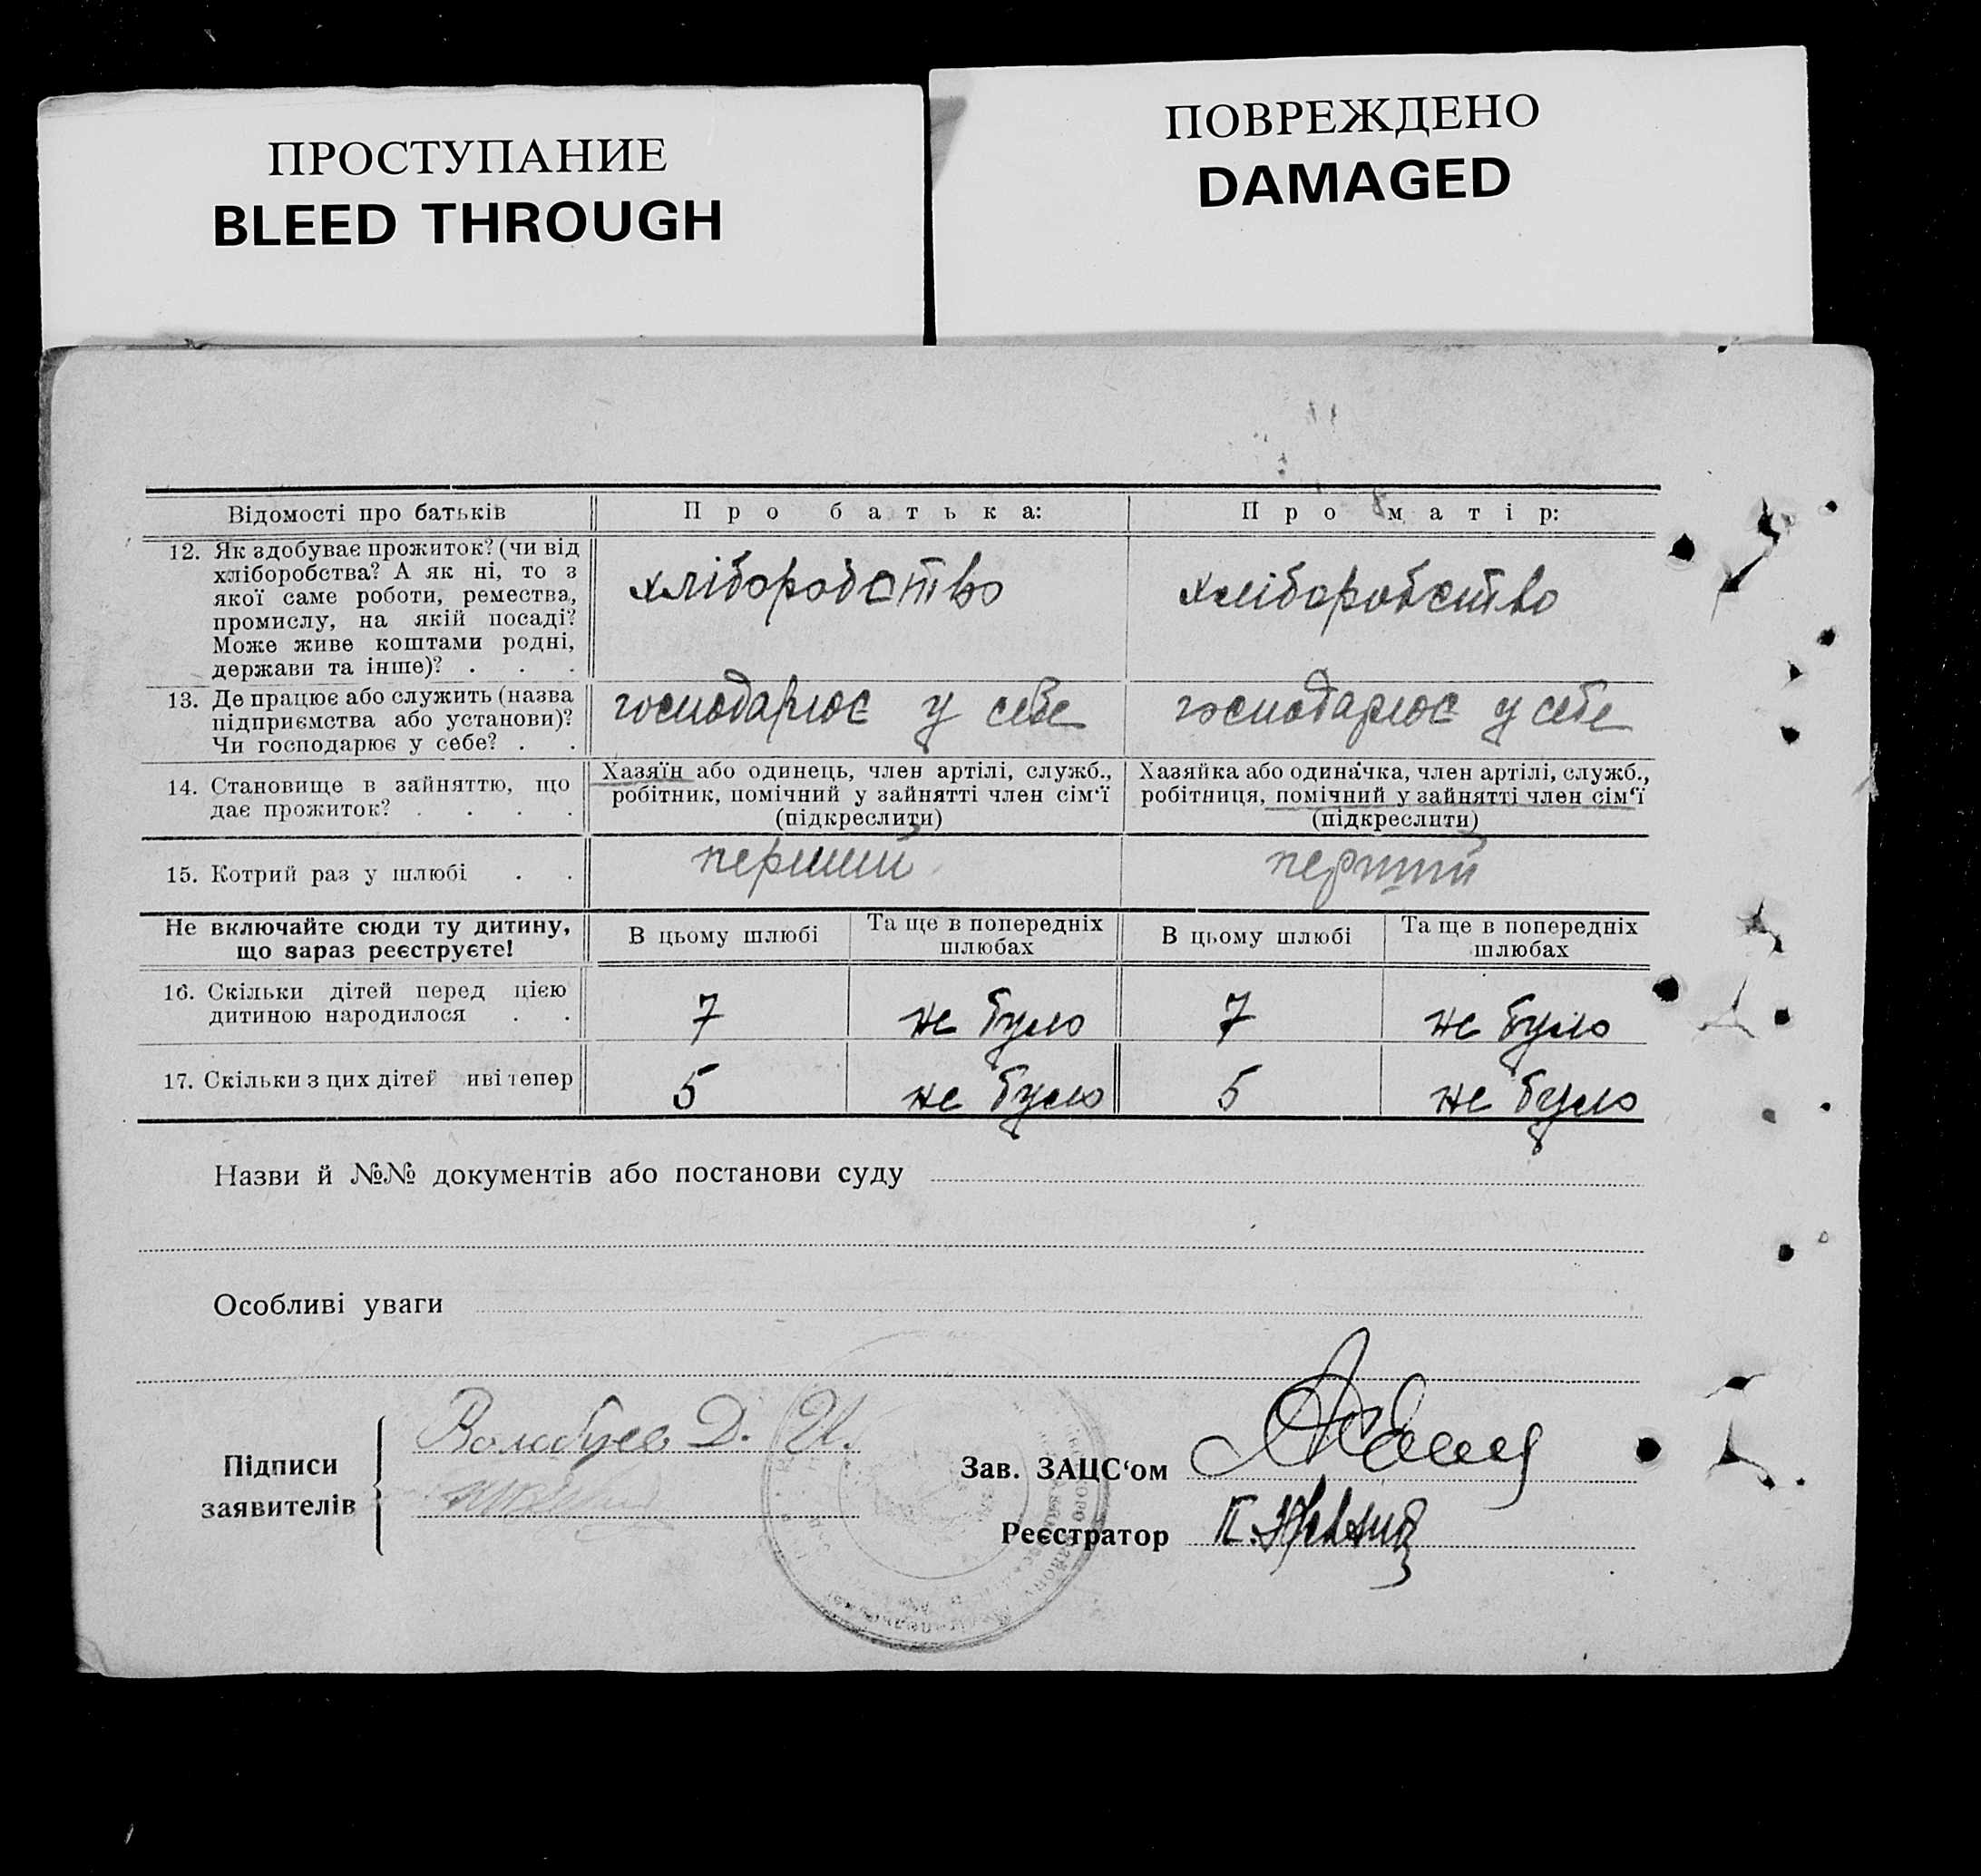 ПРОСТУПАНИЕ
BLEED THROUGH
ПОВРЕЖДЕНО
DAMAGED
Відомості про батьків
Про батька:
Про матір:
12. Як здобуває прожиток? (чи від
хліборобства? А як ні, то з
якої саме роботи, ремества,
промислу, на якій посаді?
Може живе коштами родні,
держави та інше)? . . .
хліборобство
хліборобство
13. Де працює або служить (назва
підприємства або установи)?
Чи господарює у себе? . .
господарює у себе
господарює у себе
14. Становище в зайняттю, що
дає прожиток? . . . .
Хазяїн або одинець, член артілі, служб.,
робітник, помічний у зайнятті член сім'ї
(підкреслити)
Хазяйка або одиначка, член артілі, служб.,
робітниця, помічний у зайнятті член сім'ї
(підкреслити)
15. Котрий раз у шлюбі . .
перший
перший
Не включайте сюди ту дитину,
що зараз реєструєте!
В цьому шлюбі
Та ще в попередніх
шлюбах
В цьому шлюбі
Та ще в попередніх
шлюбах
16. Скільки дітей перед цією
дитиною народилося . .
7
не було
7
не було
17. Скільки з цих дітей иві тепер
5
не було
5
не було
Назви й №№ документів або постанови суду
Особливі уваги
Підписи
заявителів
Волобуев Д. И.
Зав. ЗАЦС‘ом
Реєстратор